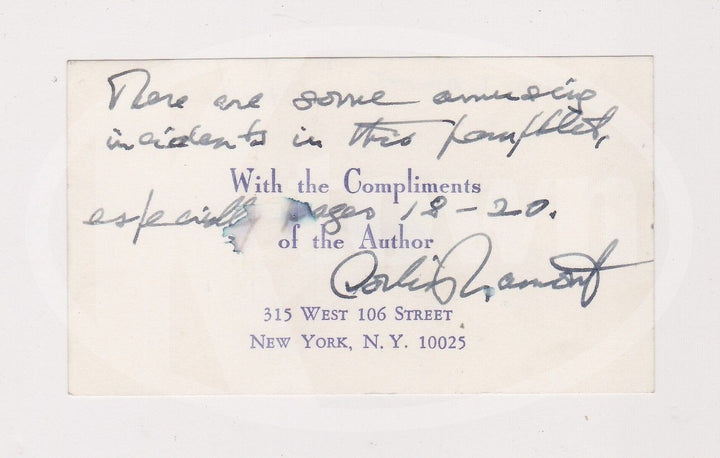 There are some amusing
incidents in this pamphlet,
With the Compliments
especially pages 18-20.
of the Author
Corliss Lamont
315 WEST 106 STREET
NEW YORK, N. Y. 10025